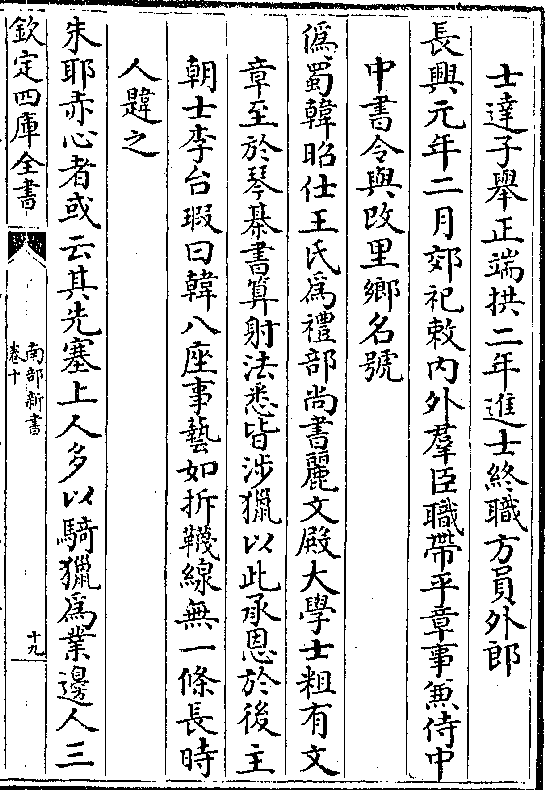 士達子舉正端拱二年進士終職方員外郎
長興元年二月郊祀敕內外羣臣職帶平章事兼侍中
中書令與改里鄉名號
僞蜀韓昭仕王氏爲禮部尚書麗文殿大學士粗有文
章至於琴棊書算射法悉皆涉獵以此承恩於後主
朝士李台瑕曰韓八座事藝如拆韈線無一條長時
人韙之
朱耶赤心者或云其先塞上人多以騎獵爲業邊人三
欽定四庫全書
南部新書
卷十
十九